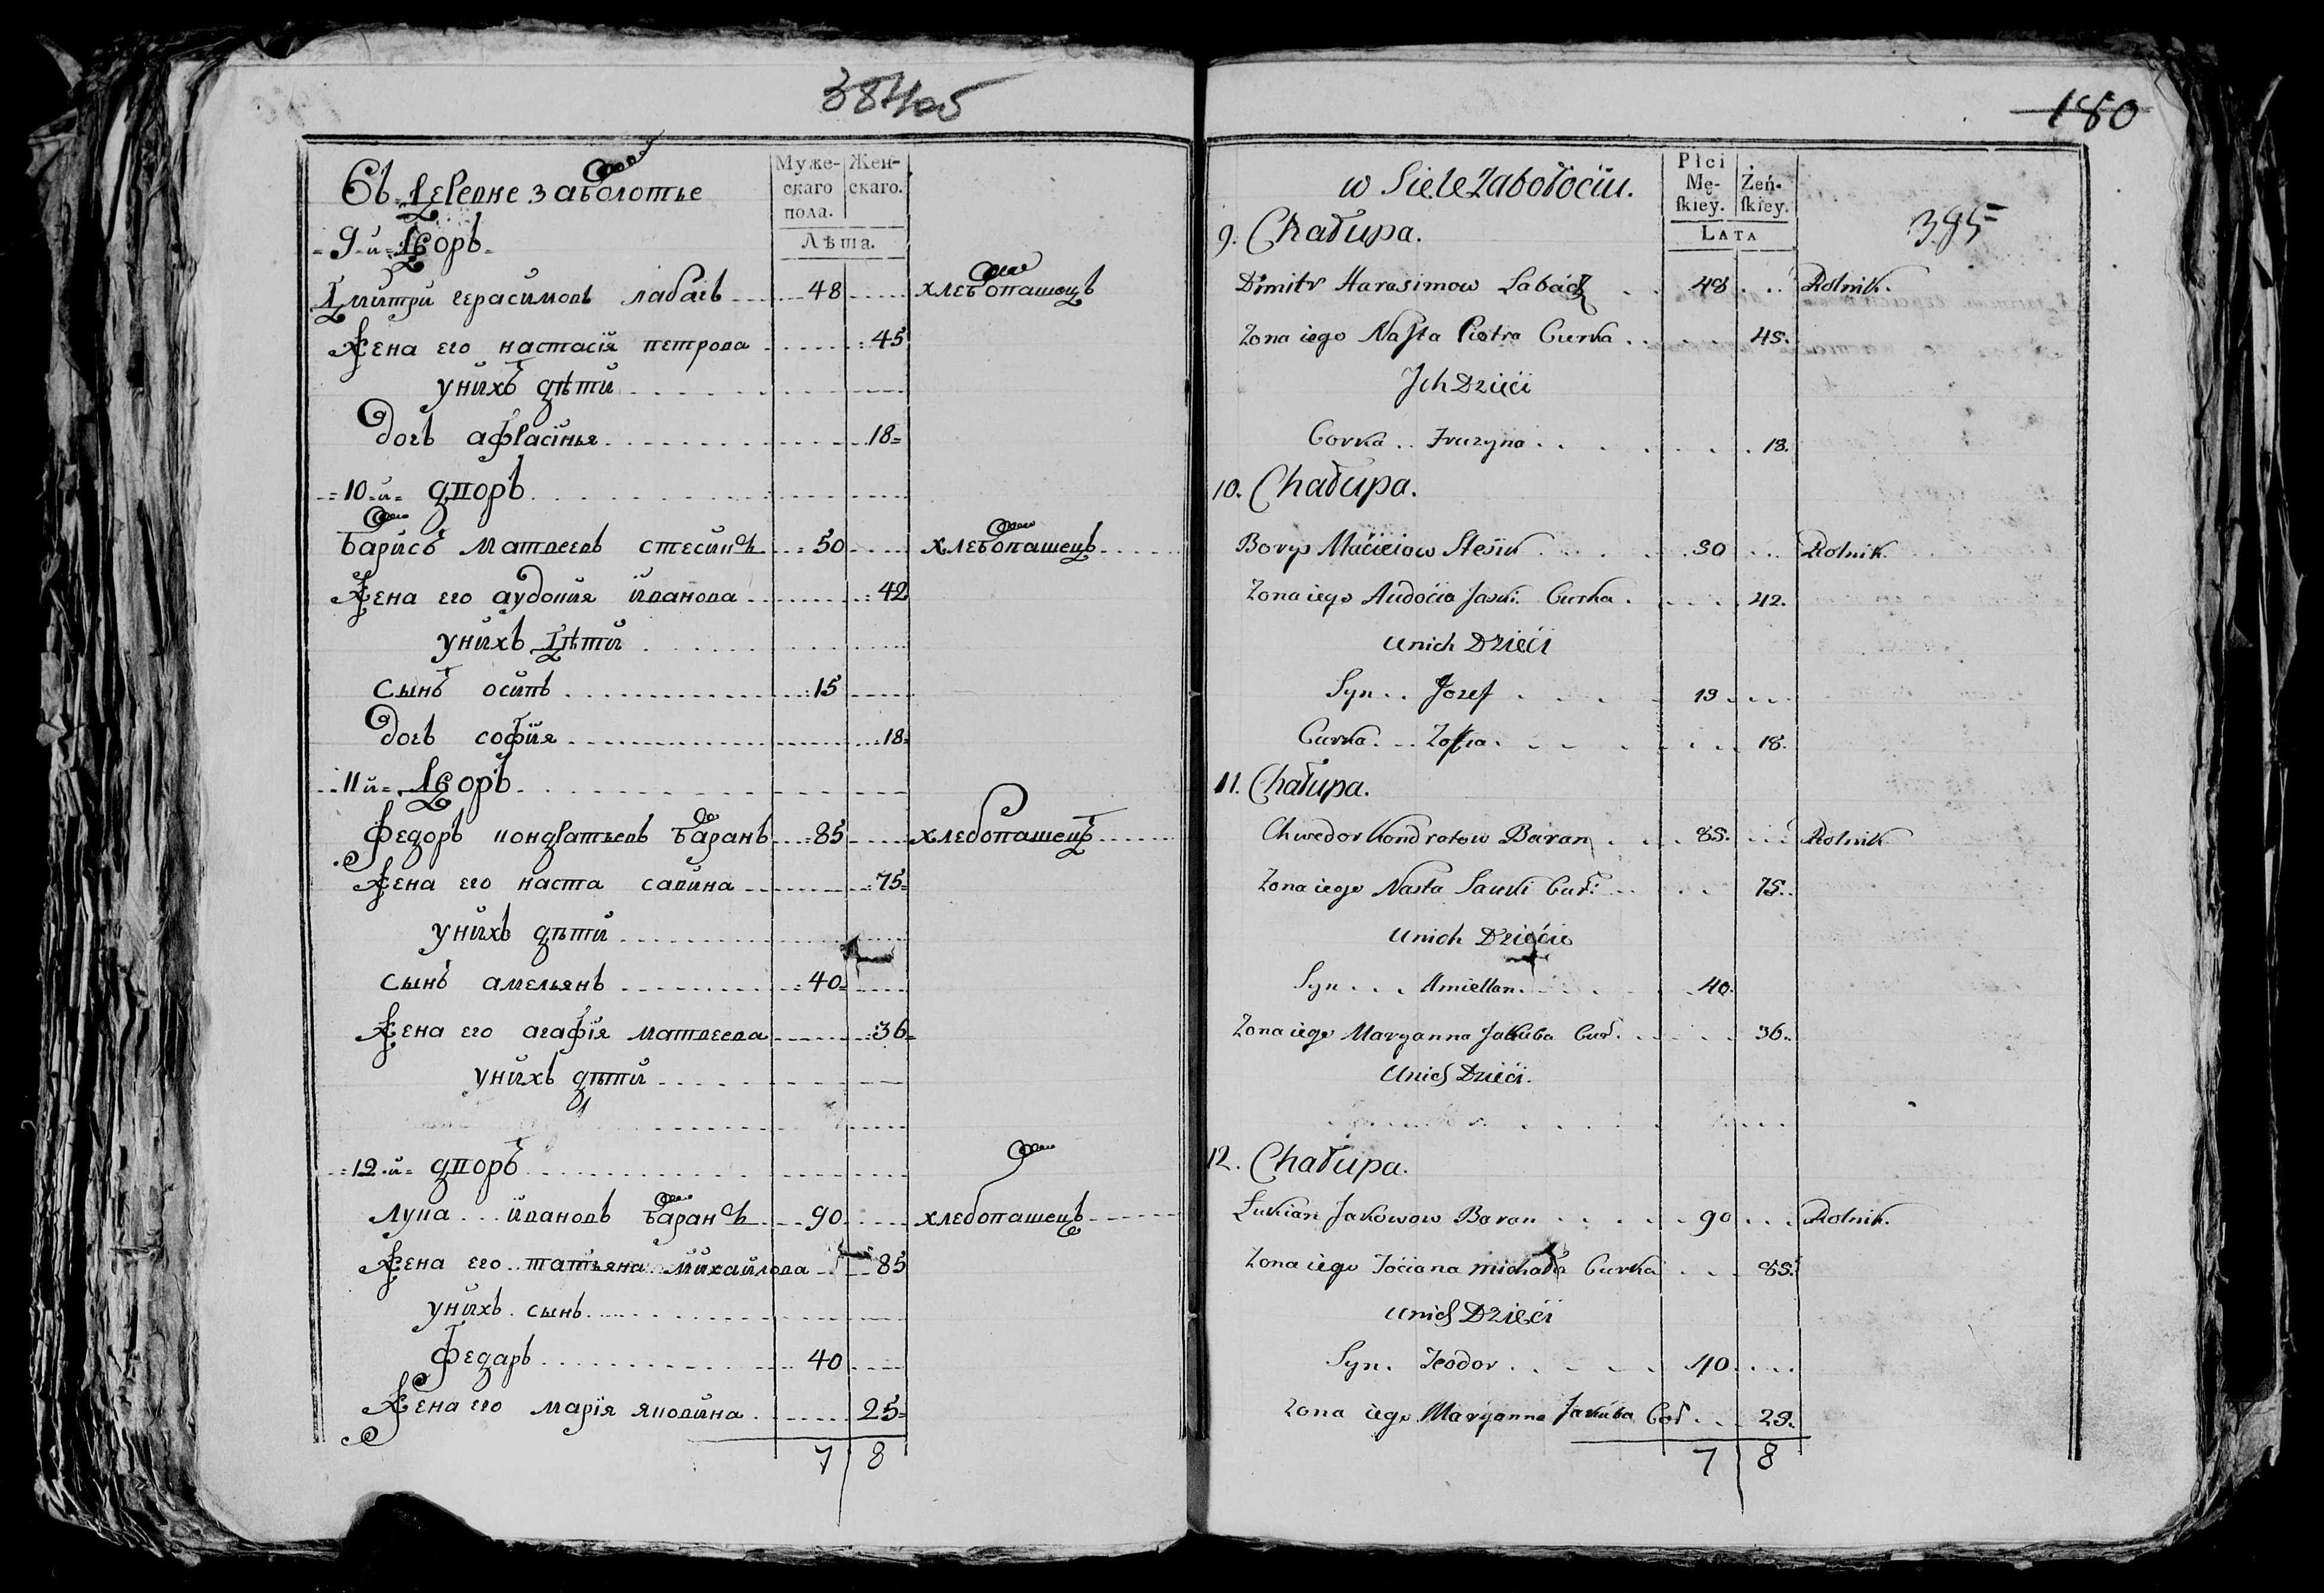 384об
Въ деревне заболотье
Муже-
скаго
пола.
Жен-
скаго.
Лѣта.
9-й дворъ
дмитри герасимовъ лабачь 48 хлебопашецъ
жена его настасія петрова 45
унихъ дѣти
дочь афрасінья 18
10-й дворъ
барисъ матвеевъ стесикъ 50 хлебопашецъ
жена его аудотия иванова 42
унихъ дѣти
сынъ осипъ 15
дочь софия 18
11й дворъ
федоръ кондратьевъ баранъ 85 хлебопашецъ
жена его наста савина 75
унихъ дѣти
сынъ амельянъ 40
жена его агафія матвеева 36
унихъ дѣти
12-й дворъ
лука ивановъ баранъ 90 хлебопашецъ
жена его татьяна михайлова 85
унихъ сынъ
федаръ 40
жена его марія яковина 25
7 8
180
w Siele Zabołociu.
Płci
Mę-
ſkiey.
Żeń-
ſkiey.
LATA
385
9. Chałupa.
Dimitr Harasimow 48 Rolnik.
Zona iego Nasta Piotra Curka 45.
Jch Dzieci
Corka Fruzyna 18.
10. Chałupa.
Borys Macieiow Stesik 50 Rolnik
Zona iego Audocia Jaśki Curka 42.
unich Dzieci
Syn Jozef 15
Curka Zofia 18.
11. Chałupa.
Chwedor Kondratow Baran 85. Rolnik
Zona iego Nasta Sauki Cur: 75.
unich Dziecie
Syn Amiellan 40
Zona iego Maryanna Jakuba Cur. 36.
Unich Dzieci.
12. Chałupa.
Łukian Jakowow Baran 90 Rolnik.
Zona iego Tociana michała Curka 85.
unich Dzieci
Syn. Teodor 40
Zona iego Maryanna Jakuba Cor. 25.
7 8